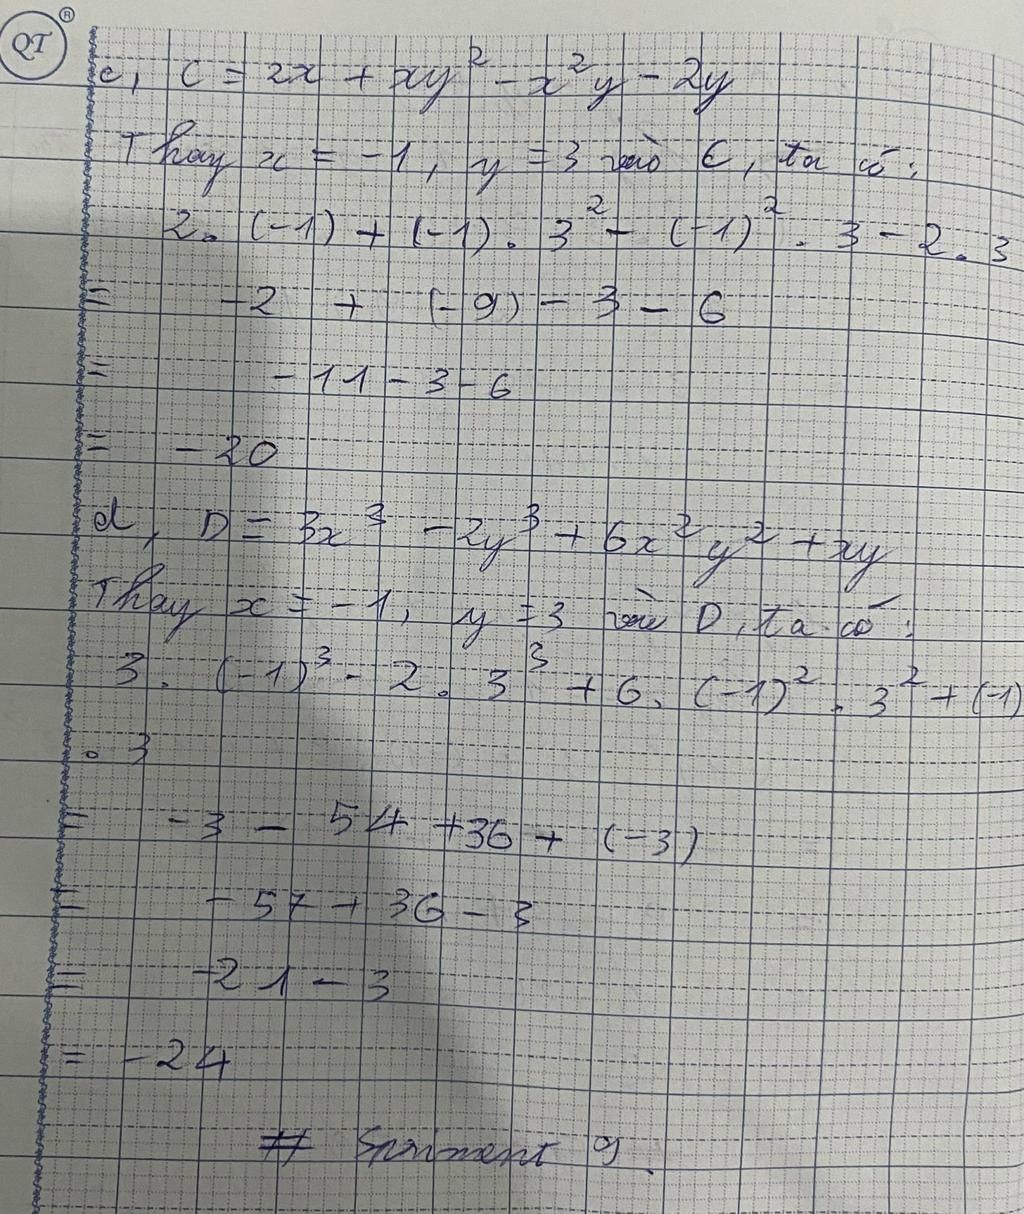 QT®
c, C = 2x + xy² - x²y - 2y
Thay x = -1, y = 3 vào C, ta có:
2. (-1) + (-1) . 3² - (-1)² . 3 - 2 . 3
= -2 + (-9) - 3 - 6
= -11 - 3 - 6
= -20
d, D = 3x³ - 2y³ + 6x²y² + xy
Thay x = -1, y = 3 vào D, ta có:
3. (-1)³ - 2 . 3³ + 6. (-1)² . 3² + (-1)
. 3
= -3 - 54 + 36 + (-3)
= -57 + 36 - 3
= -21 - 3
= -24
# 9.